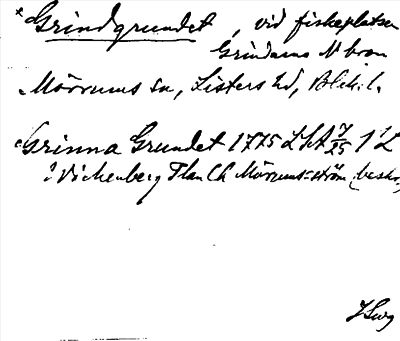 * Grindgrundet, vid fiskeplatsen
Grindarna N bron
Mörrums sn, Listers hd, Blek. l.
Grinna Grundet 1775 LSA
Wickenberg Plan Ch Mörrums-ström (beskr.